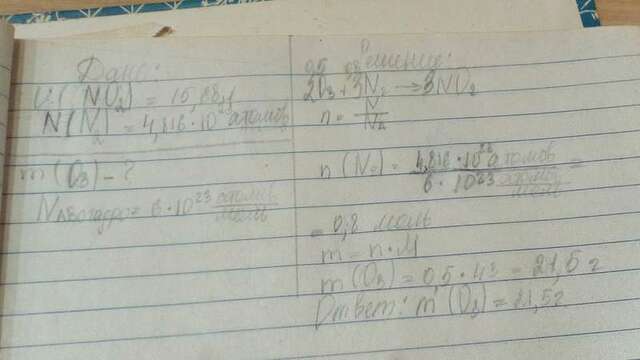 Дано:
V(NO₂) = 15,68л
N(N₂) = 4,816·10²³ атомов
m(O₃) - ?
Nавогадро = 6·10²³ атомов/моль
Решение:
0,5
2O₃+3N₂→3NO₂
n = N/Nа
n(N₂) = 4,816·10²³ атомов / 6·10²³ атомов/моль =
= 0,8 моль
m = n·M
m(O₃) = 0,5·43 = 21,5 г
Ответ: m(O₃) = 21,5г